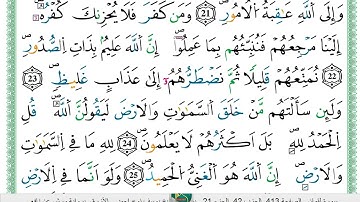 وَإِلَى اَ۬للَّهِ عَٰقِبَةُ اُ۬لُامُورِۖ 21 وَمَن كَفَرَ فَلَا يُحْزِنكَ كُفْرُهُۥٓ
إِلَيْنَا مَرْجِعُهُمْ فَنُنَبِّئُهُم بِمَا عَمِلُوٓاْۖ إِنَّ اَ۬للَّهَ عَلِيمُۢ بِذَاتِ اِ۬لصُّدُورِۖ 22
نُمَتِّعُهُمْ قَلِيلاٗ ثُمَّ نَضْطَرُّهُمُۥٓ إِلَىٰ عَذَابٍ غَلِيظٖۖ 23
وَلَئِن سَأَلْتَهُم مَّنْ خَلَقَ اَ۬لسَّمَٰوَٰتِ وَالَارْضَ لَيَقُولُنَّ اَ۬للَّهُۖ قُلِ
اِ۬لْحَمْدُ لِلهِۖ بَلَ اَكْثَرُهُمْ لَا يَعْلَمُونَۖ 24 لِلهِ مَا فِے اِ۬لسَّمَٰوَٰتِ
وَالَارْضِۖ إِنَّ اَ۬للَّهَ هُوَ اَ۬لْغَنِيُّ اُ۬لْحَمِيدُۖ 25 وَلَوَ اَنَّمَا فِے اِ۬لَارْضِ